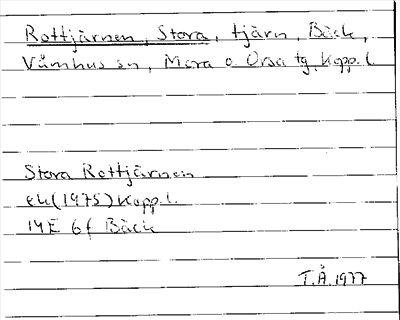 Rottjärnen, Stora, tjärn, Bäck,
Våmhus sn, Mora o Orsa tg, Kopp. l.
Stora Rottjärnen
ek (1975) Kopp. l.
14E 6f Bäck
T.Å. 1977